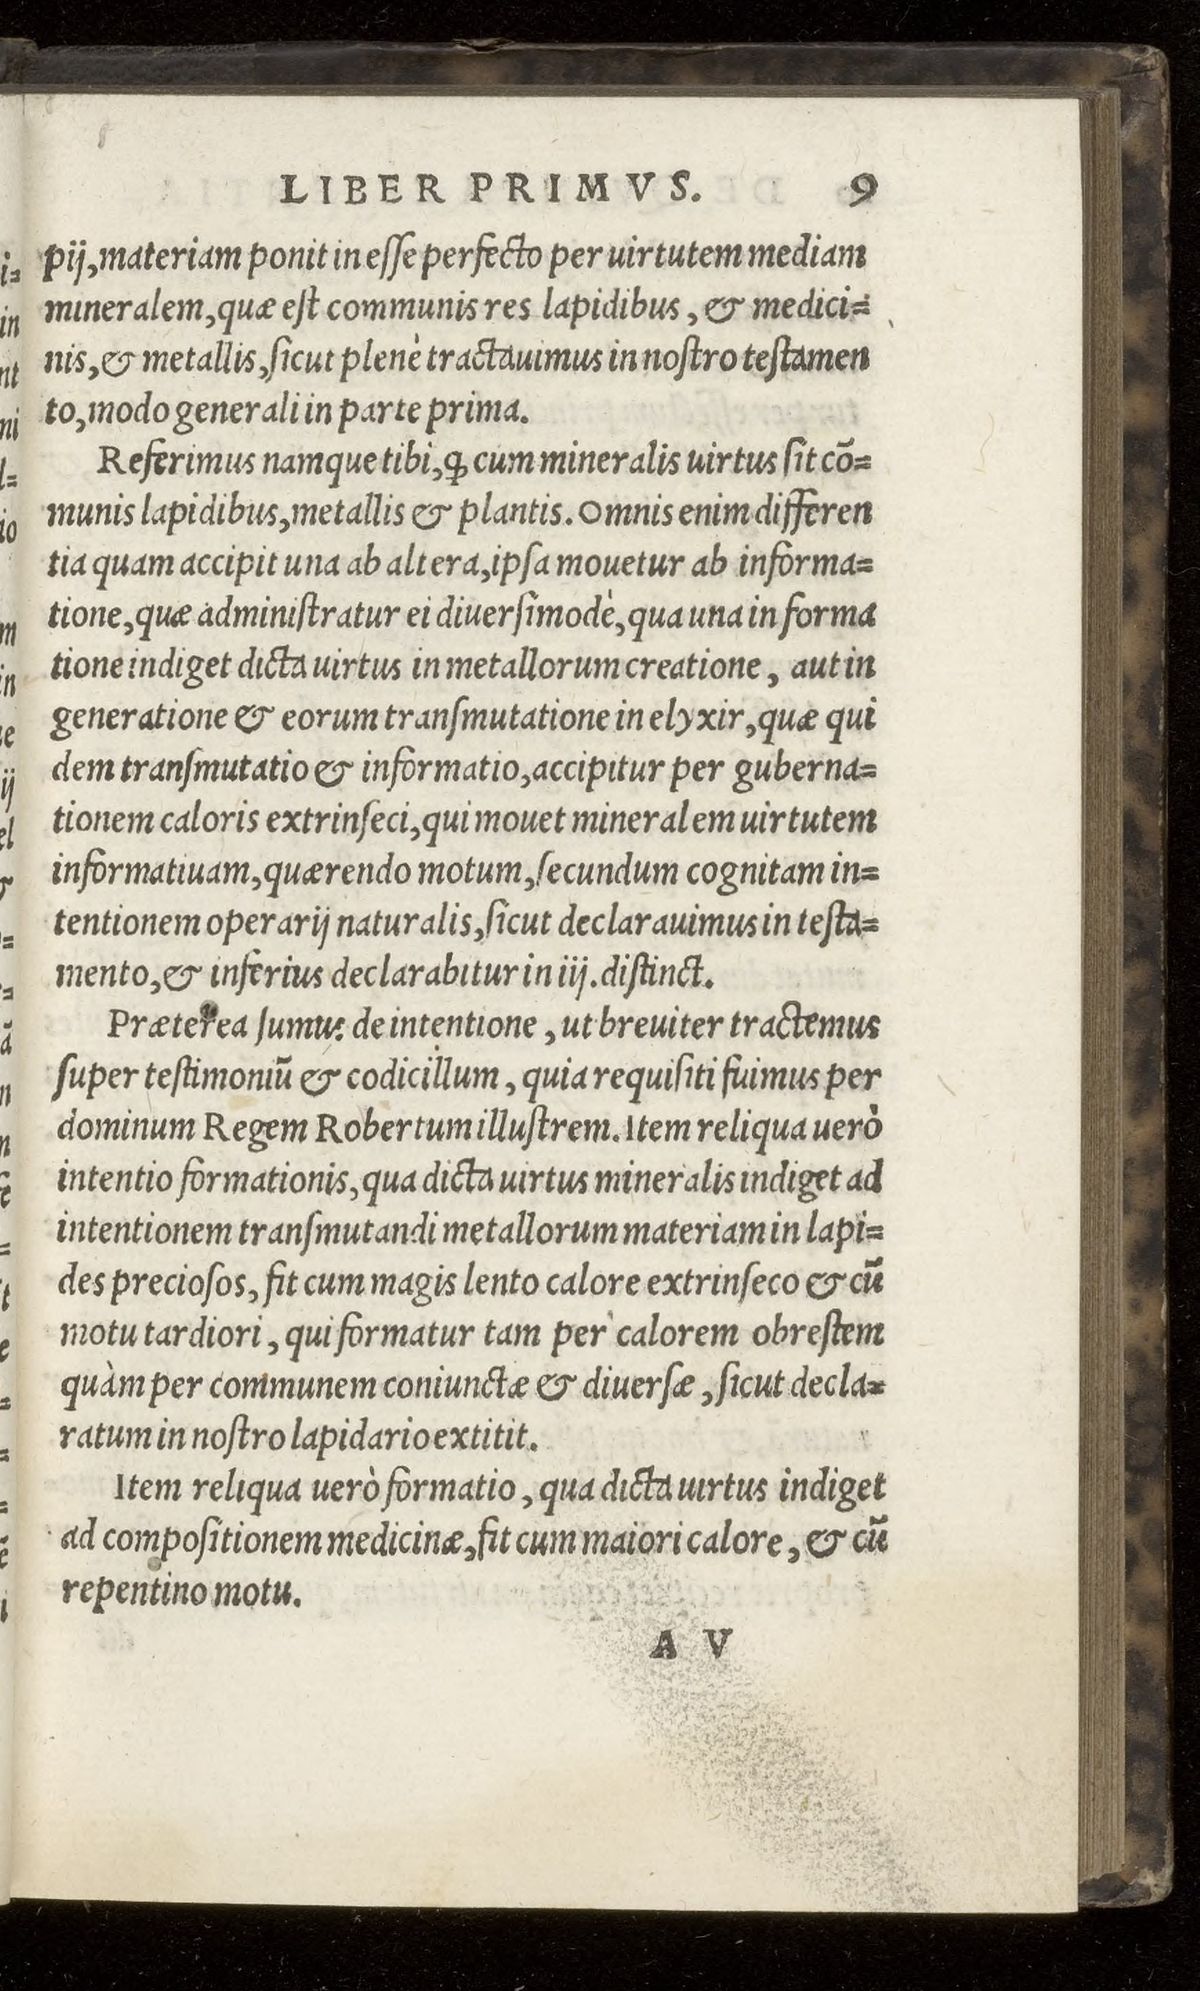 LIBER PRIMVS. 9
pij, materiam ponit in eſſe perfecto per uirtutem mediam
mineralem, quæ eſt communis res lapidibus, & medici=
nis, & metallis, ſicut plenè tractauimus in noſtro teſtamen
to, modo generali in parte prima.
Referimus namque tibi, ꝙ cum mineralis uirtus ſit cō=
munis lapidibus, metallis & plantis. Omnis enim differen
tia quam accipit una ab altera, ipſa mouetur ab informa=
tione, quæ adminiſtratur ei diuerſimodè, qua una in forma
tione indiget dicta uirtus in metallorum creatione, aut in
generatione & eorum tranſmutatione in elyxir, quæ qui
dem tranſmutatio & informatio, accipitur per guberna=
tionem caloris extrinſeci, qui mouet mineralem uirtutem
informatiuam, quærendo motum, ſecundum cognitam in=
tentionem operarij naturalis, ſicut declarauimus in teſta=
mento, & inferius declarabitur in iij. diſtinct.
Præterea ſumus de intentione, ut breuiter tractemus
ſuper teſtimoniū & codicillum, quia requiſiti fuimus per
dominum Regem Robertum illuſtrem. Item reliqua uerò
intentio formationis, qua dicta uirtus mineralis indiget ad
intentionem tranſmutandi metallorum materiam in lapi=
des precioſos, fit cum magis lento calore extrinſeco & cū
motu tardiori, qui formatur tam per calorem obreſtem
quàm per communem coniunctæ & diuerſæ, ſicut decla=
ratum in noſtro lapidario extitit.
Item reliqua uerò formatio, qua dicta uirtus indiget
ad compoſitionem medicinæ, fit cum maiori calore, & cū
repentino motu.
A V